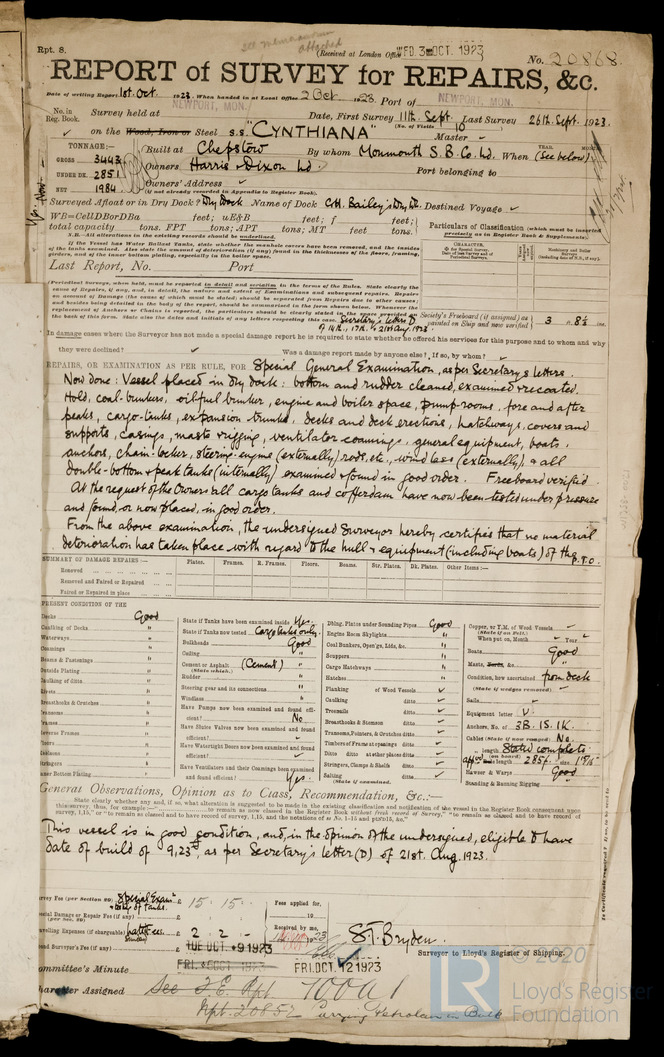 Rpt. 8.
see memorandum attached
(Received at London Office WED. 3 OCT. 1923
No. 20868
REPORT of SURVEY for REPAIRS, &c.
Date of writing Report 1st Oct. 1923. When handed in at Local Office 2 Oct 1923. Port of NEWPORT, MON.
No. in Reg. Book.
Survey held at NEWPORT, MON. Date, First Survey 11th Sept Last Survey 26th Sept. 1923.
(No. of Visits 10)
on the Wood, Iron or Steel S.S. "CYNTHIANA" Master
TONNAGE:—
GROSS 3443
UNDER DK. 2851
NET 1984
Built at Chepstow By whom Monmouth S.B. Co. Ld. When (See below)
YEAR. MONTH.
Owners Harris & Dixon Ld. Port belonging to
Owners' Address
(if not already recorded in Appendix to Register Book).
Surveyed Afloat or in Dry Dock? Dry Dock Name of Dock C.H. Bailey's Dry Dk. Destined Voyage
WB=CellDBorDBa feet; uE&B feet; f feet;
total capacity tons. FPT tons; APT tons; MT feet tons.
Particulars of Classification (which must be inserted precisely as in Register Book & Supplements).
N.B.—All alterations in the existing records should be underlined.
If the Vessel has Water Ballast Tanks, state whether the manhole covers have been removed, and the insides
CHARACTER.
Last Report, No. Port
Society's Freeboard (if assigned) as painted on Ship and now verified 3 ft 8½ ins.
Secretary's Letters D of 14th, 17th & 21st Aug. 1923.
In damage cases where the Surveyor has not made a special damage report he is required to state whether he offered his services for this purpose and to whom and why
they were declined? Was a damage report made by anyone else? If so, by whom?
REPAIRS, OR EXAMINATION AS PER RULE, FOR Special General Examination, as per Secretary's letters.
Now done: Vessel placed in dry dock: bottom and rudder cleaned, examined & recoated.
Hold, coal-bunkers, oil fuel bunker, engine and boiler space, pump-rooms, fore and after
peaks, cargo-tanks, expansion trunks, decks and deck erections, hatchways, covers and
supports, casings, masts & rigging, ventilator coamings, general equipment, boats,
anchors, chain-locker, steering-engine (externally) rods, etc., windlass (externally), & all
double-bottom & peak tanks (internally) examined & found in good order. Freeboard verified.
At the request of the Owners all cargo tanks and cofferdam have now been tested under pressure
and found, or now placed, in good order.
From the above examination, the undersigned Surveyor hereby certifies that no material
deterioration has taken place with regard to the hull & equipment (including boats) of the P.T.O.
SUMMARY OF DAMAGE REPAIRS:— Plates. Frames. R. Frames. Floors. Beams. Str. Plates. Dk. Plates. Other Items:—
Removed
Removed and Faired or Repaired
Faired or Repaired in place
PRESENT CONDITION OF THE
Decks Good
Caulking of Decks "
Waterways "
Coamings "
Beams & Fastenings "
Outside Plating "
Caulking of ditto "
Rivets "
Breasthooks & Crutches "
Transoms "
Frames "
Reverse Frames "
Floors "
Keelsons "
Stringers "
Inner Bottom Plating "
State if Tanks have been examined inside Yes.
State if Tanks now tested Cargo tanks only.
Bulkheads Good
Ceiling "
Cement or Asphalt (Cement) "
(State which.)
Rudder "
Steering gear and its connections "
Windlass "
Have Pumps now been examined and found efficient? No
Have Sluice Valves now been examined and found efficient?
Have Watertight Doors now been examined and found efficient?
Have Ventilators and their Coamings been examined and found efficient? Yes.
Dblng. Plates under Sounding Pipes Good
Engine Room Skylights "
Coal Bunkers, Open'gs, Lids, &c. "
Scuppers "
Cargo Hatchways "
Hatches "
Planking of Wood Vessels
Caulking ditto
Treenails ditto
Breasthooks & Stemson ditto
Transoms, Pointers, & Crutches ditto
Timbers of Frame at openings ditto
Ditto ditto at other places ditto
Stringers, Clamps & Shelfs ditto
Salting ditto
(State if examined.
Copper, or Y.M. of Wood Vessels
(State if on Felt.)
When put on, Month Year
Boats Good
Masts, Spars, &c. "
Condition, how ascertained from deck
(State if wedges removed)
Sails
Equipment letter V.
Anchors, No. of 3B. 1S. 1K.
Cables (State if now ranged) No.
" length Stated complete
(on board)
Hawser & Warps Good
Standing & Running Rigging "
General Observations, Opinion as to Class, Recommendation, &c.:—
This vessel is in good condition, and, in the opinion of the undersigned, eligible to have
date of build of 9,23, as per Secretary's letter (D) of 21st Aug. 1923.
Survey Fee (per Section 29) Special Exam. & Testing of Tanks. £ 15 : 15 : Fees applied for,
Special Damage or Repair Fee (if any) £ 19
(per Sec. 29)
Travelling Expenses (if chargeable) £ 2 : 2 : - Received by me,
Second Surveyor's Fee (if any) £
TUE. OCT. 9 1923
S.T. Bryden.
Surveyor to Lloyd's Register of Shipping.
Committee's Minute FRI. OCT. 12 1923
Character Assigned See F.E. Rpt 100A1
Rpt. 20852 Carrying Petroleum in Bulk
To Certificate required
LR
© 2020
Lloyd's Register
Foundation